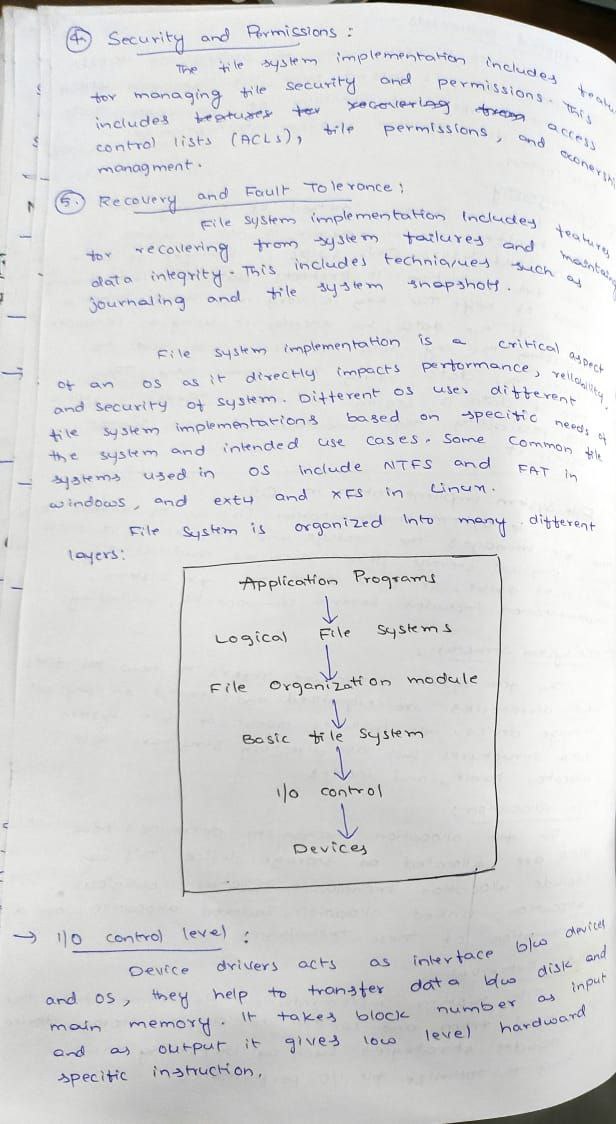 4. Security and Permissions :
The file system implementation includes
for managing file security and permissions. This
includes features for recovering from access
control lists (ACLs), file permissions, and
managment.
5. Recovery and Fault Tolerance :
File system implementation Includes features
for recovering from system failures and
data integrity. This includes techniques such as
journaling and file system snapshots.
File system implementation is a critical aspect
→ of an OS as it directly impacts performance, reliability,
and security of system. Different OS uses different
file system implementations based on specific needs of
the system and intended use cases. Some common file
systems used in OS include NTFS and FAT in
windows, and ext4 and XFS in Linux.
File System is organized Into many different
layers:
Application Programs
↓
Logical File Systems
↓
File Organization module
↓
Basic file System
↓
I/o control
↓
Devices
→ I/O control level :
Device drivers acts as interface b/w devices
and OS, they help to transfer data b/w disk and
main memory. It takes block number as input
and as output it gives low level hardward
specific instruction,